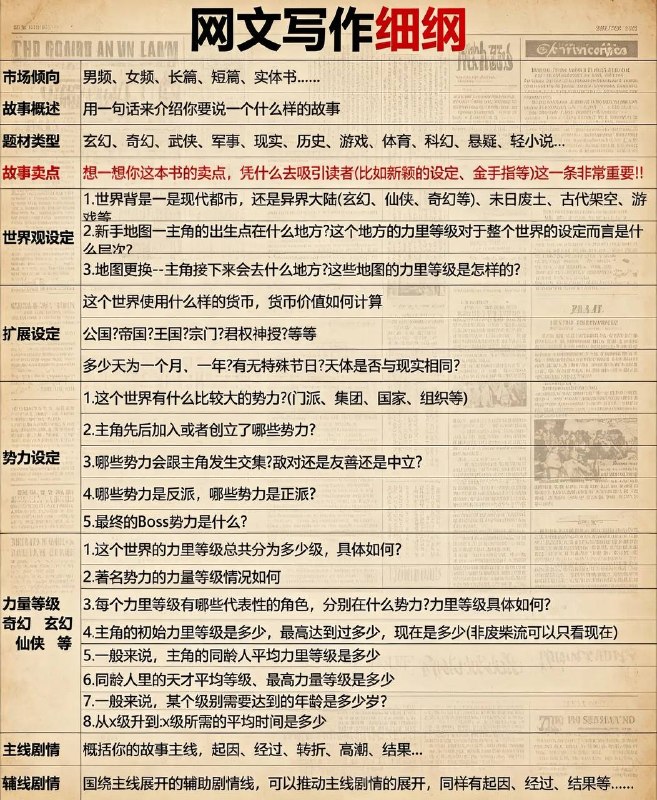 网文写作细纲
市场倾向 男频、女频、长篇、短篇、实体书......
故事概述 用一句话来介绍你要说一个什么样的故事
题材类型 玄幻、奇幻、武侠、军事、现实、历史、游戏、体育、科幻、悬疑、轻小说...
故事卖点 想一想你这本书的卖点，凭什么去吸引读者(比如新颖的设定、金手指等)这一条非常重要!!
世界观设定
1.世界背景一是现代都市，还是异界大陆(玄幻、仙侠、奇幻等)、末日废土、古代架空、游
戏等
2.新手地图一主角的出生点在什么地方?这个地方的力里等级对于整个世界的设定而言是什
么层次?
3.地图更换--主角接下来会去什么地方?这些地图的力里等级是怎样的?
扩展设定
这个世界使用什么样的货币，货币价值如何计算
公国?帝国?王国?宗门?君权神授?等等
多少天为一个月、一年?有无特殊节日?天体是否与现实相同?
势力设定
1.这个世界有什么比较大的势力?(门派、集团、国家、组织等)
2.主角先后加入或者创立了哪些势力?
3.哪些势力会跟主角发生交集?敌对还是友善还是中立?
4.哪些势力是反派，哪些势力是正派?
5.最终的Boss势力是什么?
力量等级
奇幻 玄幻
仙侠 等
1.这个世界的力里等级总共分为多少级，具体如何?
2.著名势力的力量等级情况如何
3.每个力里等级有哪些代表性的角色，分别在什么势力?力里等级具体如何?
4.主角的初始力里等级是多少，最高达到过多少，现在是多少(非废柴流可以只看现在)
5.一般来说，主角的同龄人平均力里等级是多少
6.同龄人里的天才平均等级、最高力量等级是多少
7.一般来说，某个级别需要达到的年龄是多少岁?
8.从x级升到:x级所需的平均时间是多少
主线剧情 概括你的故事主线，起因、经过、转折、高潮、结果...
辅线剧情 围绕主线展开的辅助剧情线，可以推动主线剧情的展开，同样有起因、经过、结果等......